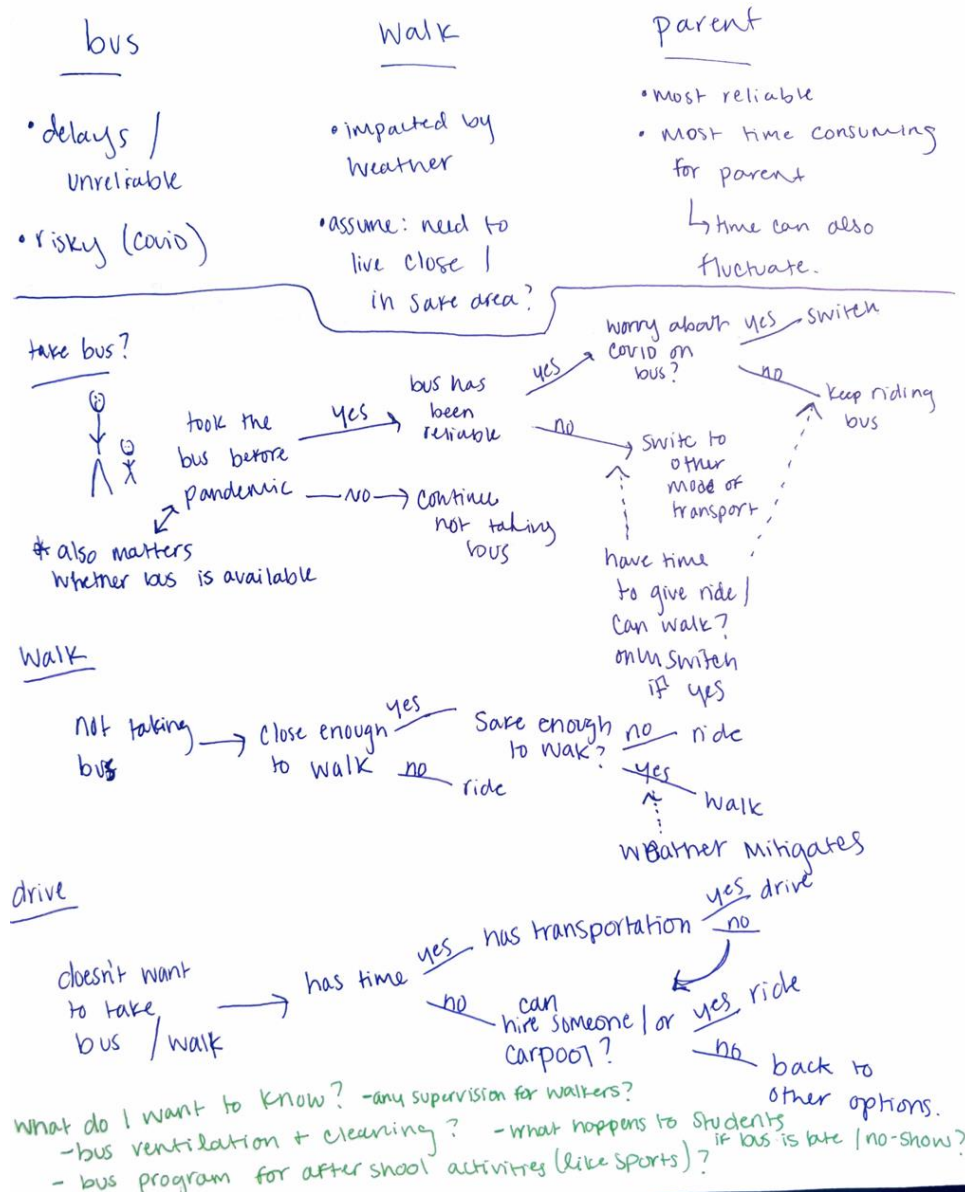 bus
• delays /
unreliable
• risky (covid)
Walk
• impacted by
weather
• assume: need to
live close /
in safe area?
parent
• most reliable
• most time consuming
for parent
↳ time can also
fluctuate.
take bus?
took the
bus before
pandemic
yes
bus has
been
reliable
yes
worry about
covid on
bus?
yes
switch
no
keep riding
bus
no
switc to
other
mode of
transport
NO
continue
not taking
bus
* also matters
whether bus is available
have time
to give ride /
can walk?
only switch
if yes
Walk
not taking
bus
close enough
to walk
yes
no
ride
Safe enough
to wak?
no
ride
yes
walk
weather mitigates
drive
doesn't want
to take
bus / walk
has time
yes
has transportation
yes
drive
no
no
can
hire someone / or
carpool?
yes
ride
no
back to
other options.
What do I want to know? - any supervision for walkers?
- bus ventilation + cleaning? - what happens to students
if bus is late / no-show?
- bus program for after shool activities (like sports)?